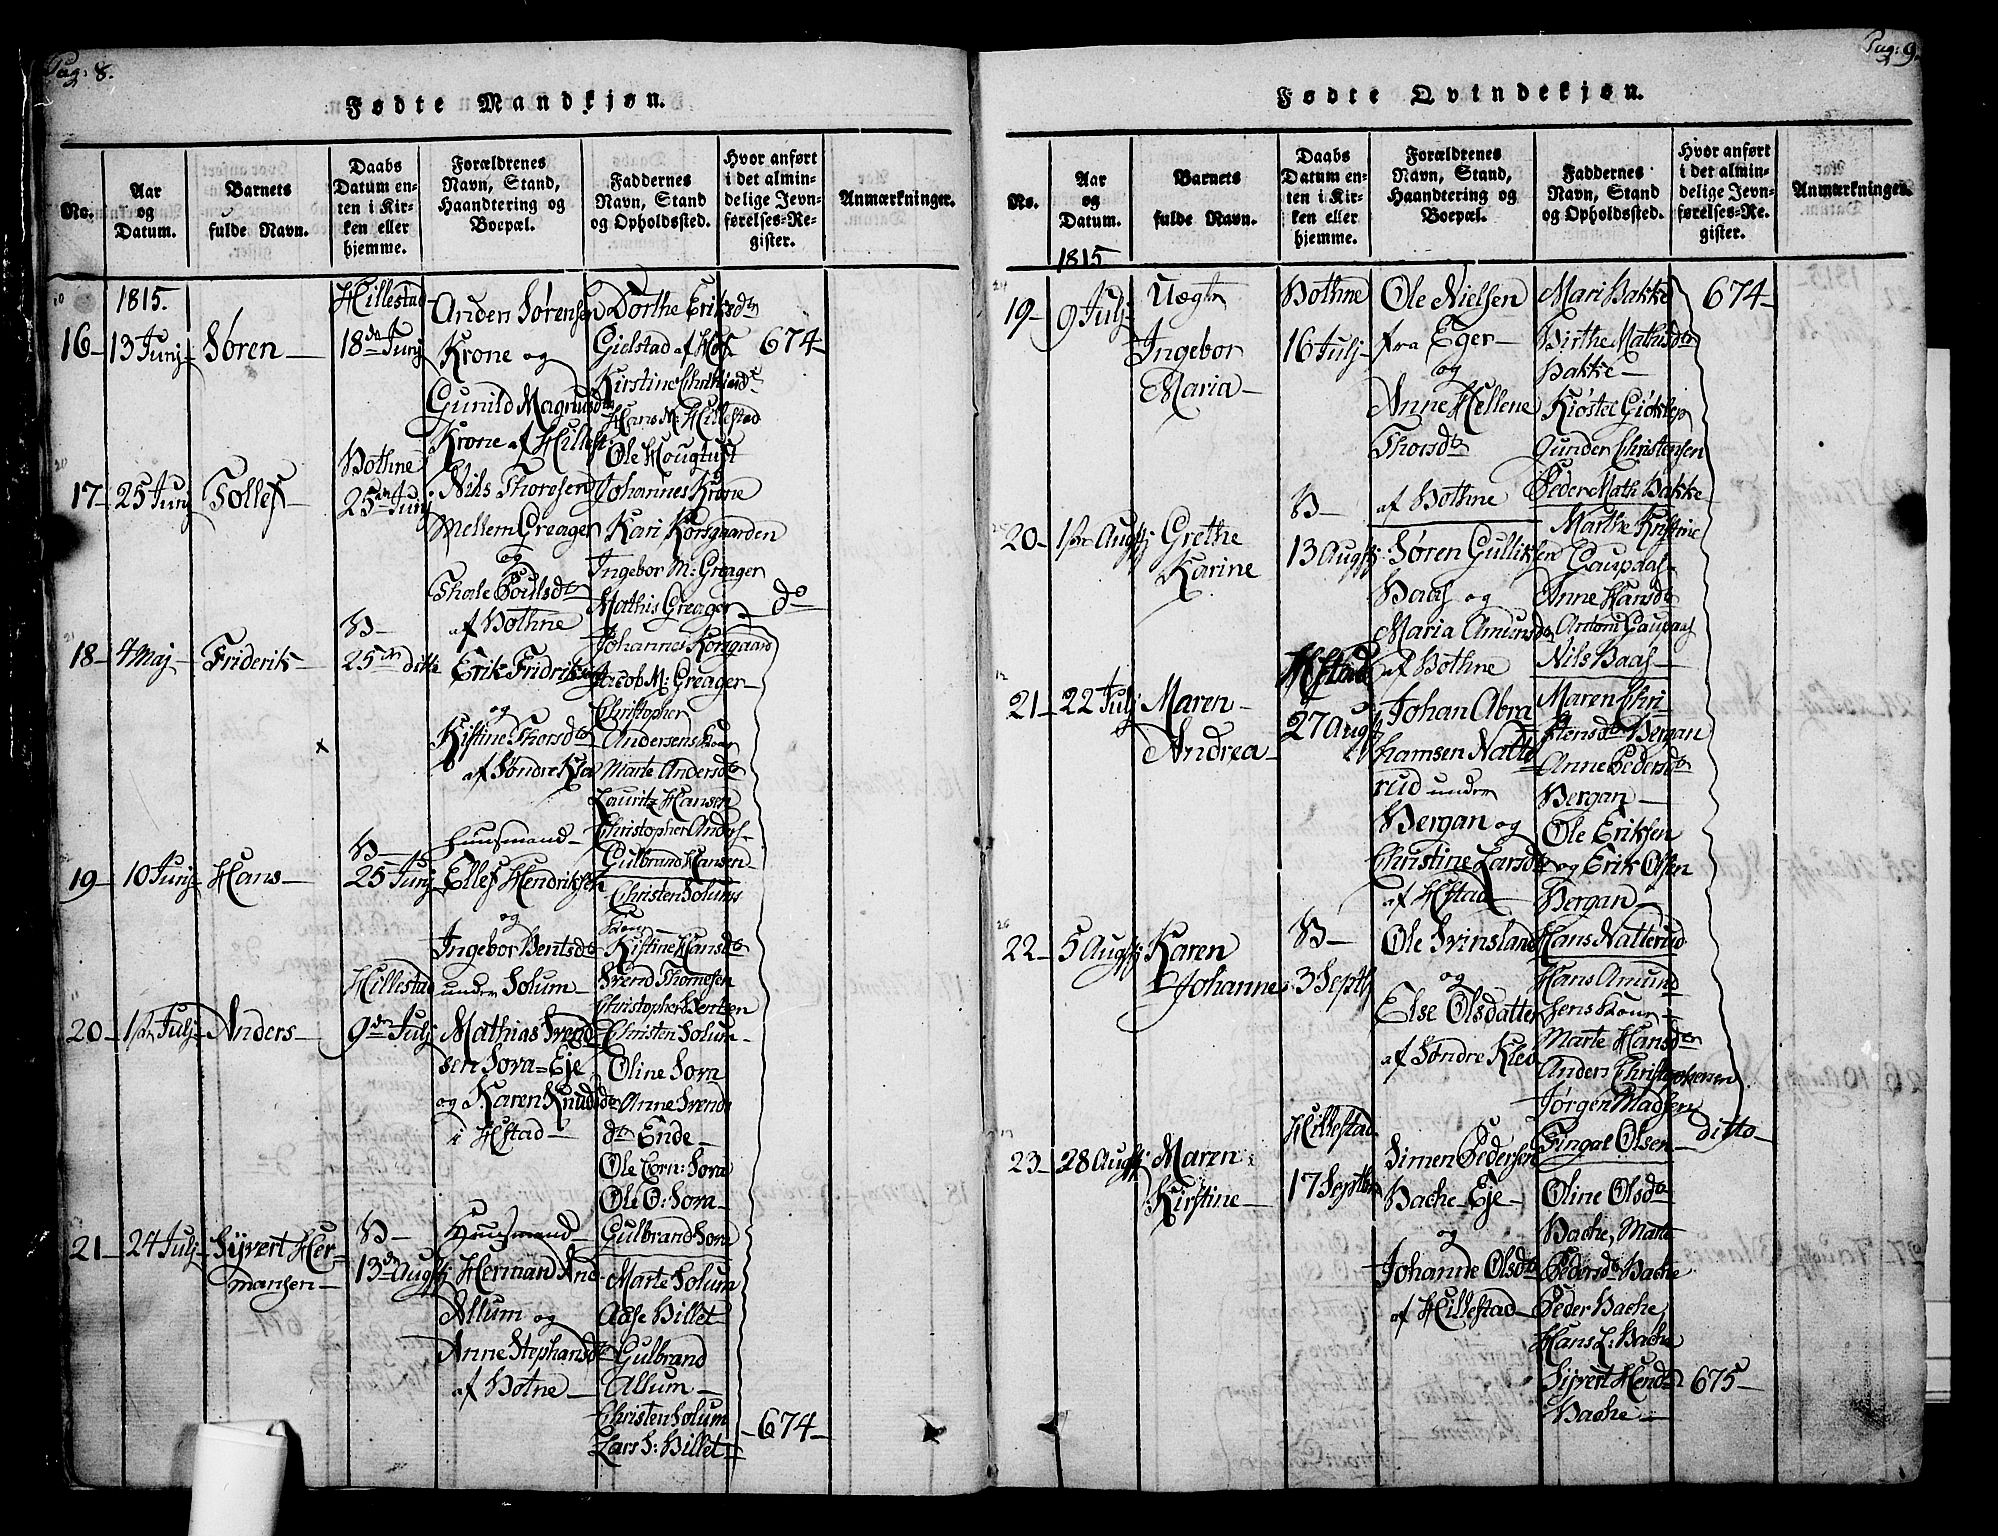 Pag: 8.
Fødte Mandkjøn.
No.
Aar
og
Datum.
Barnets
fulde Navn.
Daabs
Datum en-
ten i Kir-
ken eller
hjemme.
Forældrenes
Navn, Stand,
Haandtering og
Boepæl.
Faddernes
Navn, Stand
og Opholdssted.
Hvor anført
i det almin-
delige Jevn-
førelses-Re-
gister.
Anmærkninger.
1815.
16 13 Junj Søren
Hillestad
18de Junj
Anden Sørensen
Krone og
Gunild Magnusdtr
Krone af Hillest
Dorthe Eriksdtr
Gielstad af Hof
Kirstine
Hans M: Hillestad
Ole Hougtust
674
17 25 Junj Tollef
Bothne
25de Junj
Nils Thoresen
Mellem Greager
og
Thale
af Bothne
Johannes Krone
Kari Korsgaarden
Ingebor M: Greager
Mathis Greager
Johannes Korsgaard
Jacob M: Greager
do
18 4 Maj Friderik
B
25de ditto
Erik Fridriksen
og
Kistine Thorsdtr
af Søndre Klev
Christopher
Andersens Kone
Marte Andersdtr
Lauritz Hansen
Christopher Anders
Gulbrand Hansen
19 10 Junj Hans
B
25 Junj
Huusmand
Ellef Hendriksen
og
Ingebor Bentsdtr
under Solum
Christen Solums
Kone
Kistine Hansdtr
Svend Thomesen
Christopher Bentsen
Christen Solum
20 1ste Julj Anders
Hillestad
9de Julj
Mathias Svend-
sen Sora=Eje
og Karen Knudsdtr
i Hstad
Oline Sora
Anne Svends
dtr Ende
Ole Corn: Sora
Ole O: Sora
Gulbrand Sora
21 24 Julj Syvert Her-
mansen
B
13de Augstj
Huusmand
Herman And
Allum og
Anne Stephansdtr
af Botne
Marte Solum
Aase Billet
Gulbrand
Allum
Christen Solum
Lars S: Billet
674
Pag: 9.
Fødte Qvindekjøn.
No.
Aar
og
Datum.
Barnets
fulde Navn.
Daabs
Datum en-
ten i Kir-
ken eller
hjemme.
Forældrenes
Navn, Stand,
Haandtering og
Boepæl.
Faddernes
Navn, Stand
og Opholdssted.
Hvor anført
i det almin-
delige Jevn-
førelses-Re-
gister.
Anmærkninger.
1815
19 9 Julj
Uægte
Ingebor
Maria
Bothne
16 Julj
Ole Nielsen
fra Eger
og
Anne Hellene
Thorsdtr
af Bothne
Mari Bakke
Birthe Mathisdtr
Bakke
Kiøstel
Gunder Christensen
Peder Math Bakke
674
20 1ste Augstj Grethe
Karine
B
13 Augstj
Søren Gulliksen
Baas og
Maria Amunsdtr
af Bothne
Marthe Kristine
Gaupaas
Anne Hansdtr
Antoni Gaupaas
Nils Baas
21 22 Julj Maren
Andrea
Hstad
27 Augstj
Johan Abra
hamsen Natte
rud under
Bergan og
Christine Larsdtr
af Hstad
Maren Chri-
stensdtr Bergan
Anne Pedersdtr
Bergan
Ole Eriksen
og Erik Olsen
Bergan
Hans Natterud
22 5 Augstj Karen
Johanne
B
3 Septbr
Ole Svinsland
og
Else Olsdatter
af Søndre Klev
Hans Amund
sens Kone
Marte Hansdtr
Anders Christophersen
Jørgen Madsen
Fingal Olsen
ditto
23 28 Augstj Maren
Kirstine
Hillestad
17 Septbr
Simen Pedersen
Bache Eje
og
Johanne Olsdtr
af Hillestad
Oline Olsdtr
Bache, Mari
Pedersdtr Bache
Peder Bache
Hans L: Bache
Syvert Hend
Bache
675